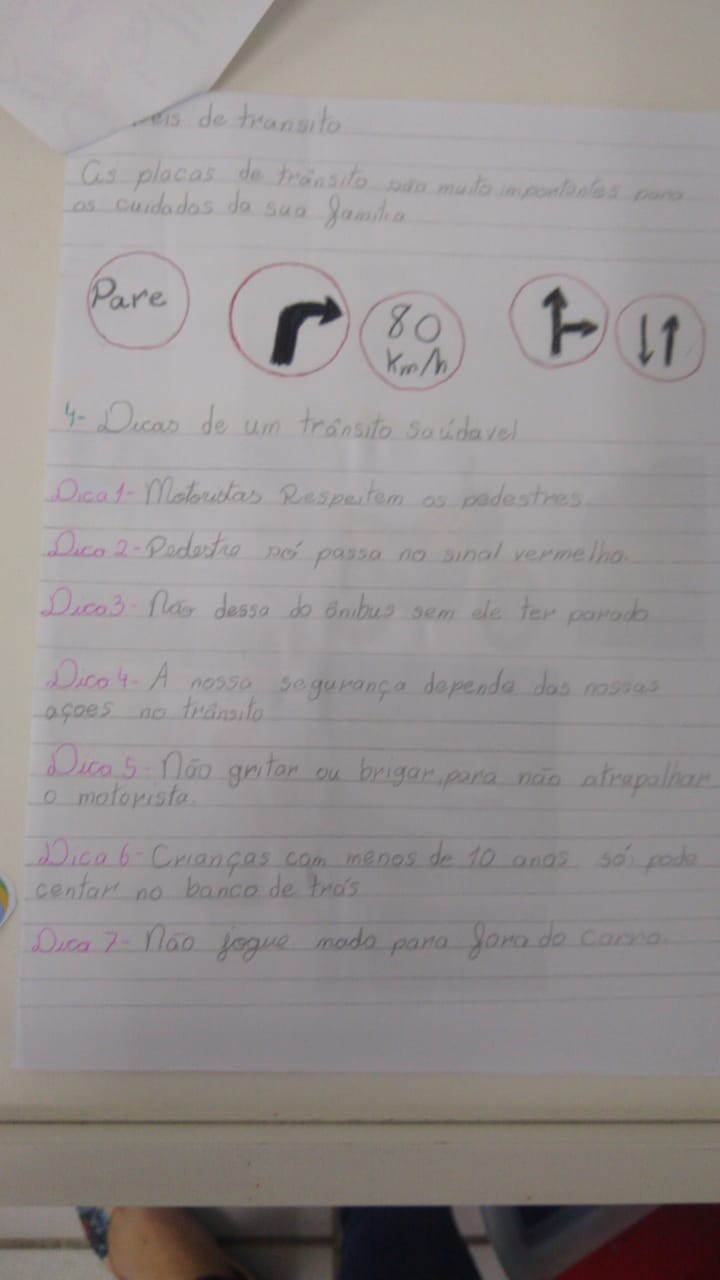 eis de transito
As placas de trânsito são muito importantes para
os cuidados da sua família
Pare
80
Km/h
4- Dicas de um trânsito saúdavel
Dica 1- Motoristas Respeitem os pedestres.
Dica 2- Pedestre só passa no sinal vermelho.
Dica 3- Não dessa do ônibus sem ele ter parado
Dica 4- A nossa segurança depende das nossas
açoes no trânsito
Dica 5- Não gritar ou brigar, para não atrapalhar
o motorista.
Dica 6- Crianças com menos de 10 anos só pode
centar no banco de trás
Dica 7- Não jogue nada para fora do carro.